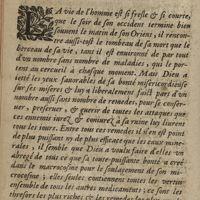 LA vie de l'homme est si fresle & si courte,
que le soir de son occident termine bien
souuent le matin de son Orient, il rencon-
tre aussi-tost le tombeau de sa mort que le
berceau de sa vie, tant il est enuironné de par tout
d'vn nombre sans nombre de maladies, qui le por-
tent au cercueil à chaque moment. Mais Dieu a
ietté les yeux fauorables de sa bonté misericordieuse
sur ses miseres & luy a liberalement faict part d'vn
nombre aussi sans nombre de remedes, pour se conser-
uer, preseruer, & guerir de toutes les attaques que
ces ennemis iurez & coniurez à sa ruine luy liurent
tous les iours. Entre tous ces remedes il n'en est point
de plus puissant ny de plus efficace que les eaux mine-
rales, il semble que Dieu a voulu faire d'elles vn
abregé de tout ce que sa toute-puissante bonté a creé
dans le macrocosme pour le soulagement de son mi-
crocosme; elles seules contiennent toutes les vertus
ensemble de tous les autres medicaments; ce sont les
thresors les plus riches & les remedes les plus